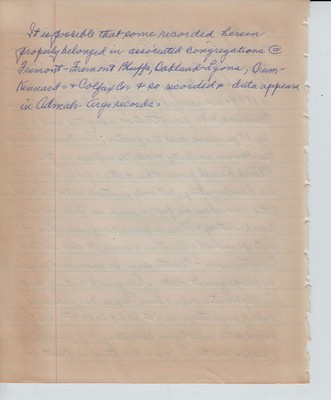 It is possible that some recorded herein
properly belonged in associated congregations @
Fremont - Fremont Bluffs, Oakland - Lyons, Orum -
Kennard - + Colfax Co. + so recorded + data appears
in Admah - Argo records.